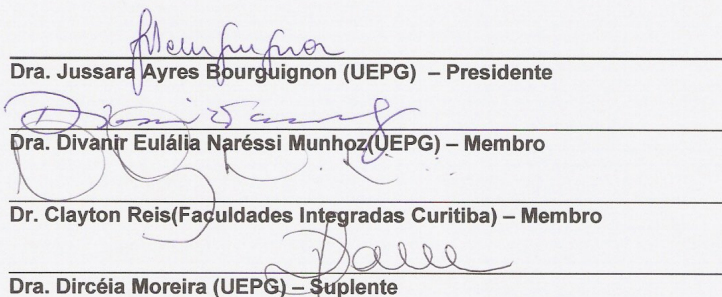 Dra. Jussara Ayres Bourguignon (UEPG) – Presidente
Dra. Divanir Eulália Naréssi Munhoz(UEPG) – Membro
Dr. Clayton Reis(Faculdades Integradas Curitiba) – Membro
Dra. Dircéia Moreira (UEPG) – Suplente